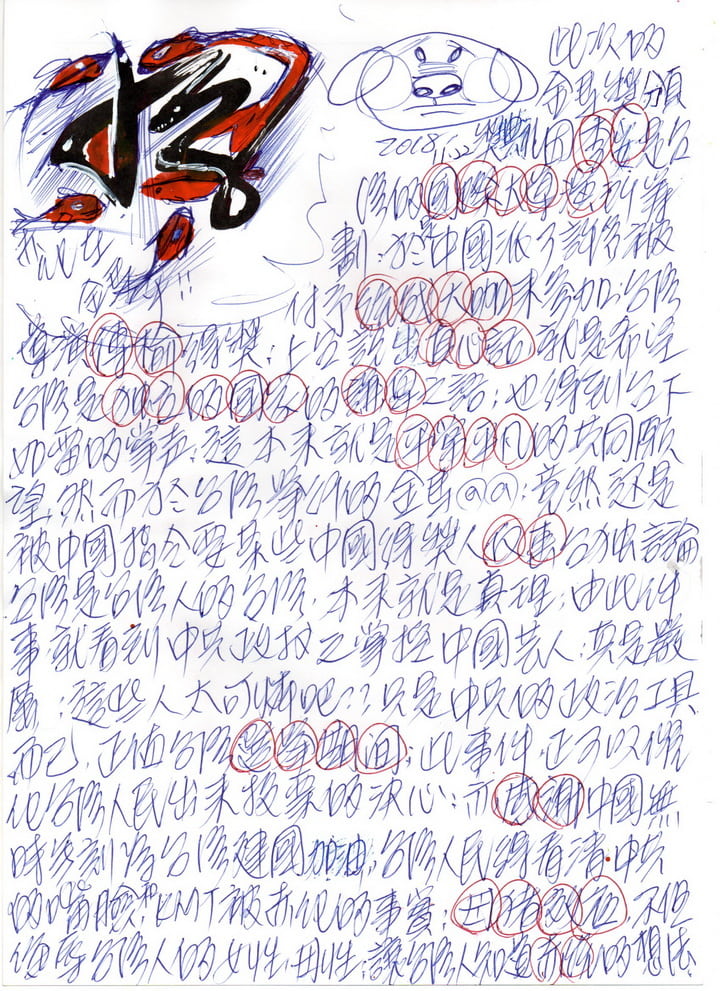 此次的
金馬獎頒
2018 11.22 獎典禮因李安是台
灣的國際大導演所籌
劃：於中國派了許多被
我現在
付予 大咖來參加：台灣
導演傅榆得獎：上台說出真心話就是希望
台灣是独立的國家的謝辭之語；也得到台下
如雷的掌声，這本來就是平常平凡的共同願
望，然而於台灣舉行的金馬@@：竟然還是
被中國指令要某些中國得獎人 台独言論
台灣是台灣人的台灣，本來就是真理，由此件
事就看到中共政權之掌控中國艺人：真是嚴
厲：這些人太可憐吧??只是中共的政治工具
而已，正值台灣選舉期间；此事件正可以催
化台灣人民出來投票的決心：亦感謝中國無
時無刻為台灣建國加油，台灣人民得看清中共
的嘴臉和KMT被赤化的事實：母豬 不但
侮辱台灣人的女性母性：讓台灣人知道 的想法